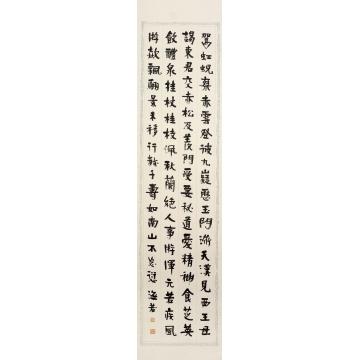 駕虹蜺乘赤雲登彼九嶷歷玉門濟天漢見西王母
謁東君交赤松及羨門受要祕道愛精神食芝英
飲醴泉拄杖桂枝佩秋蘭絕人事游渾元若疾風
游欻飄翩景未移行數千壽如南山不忘愆 海若